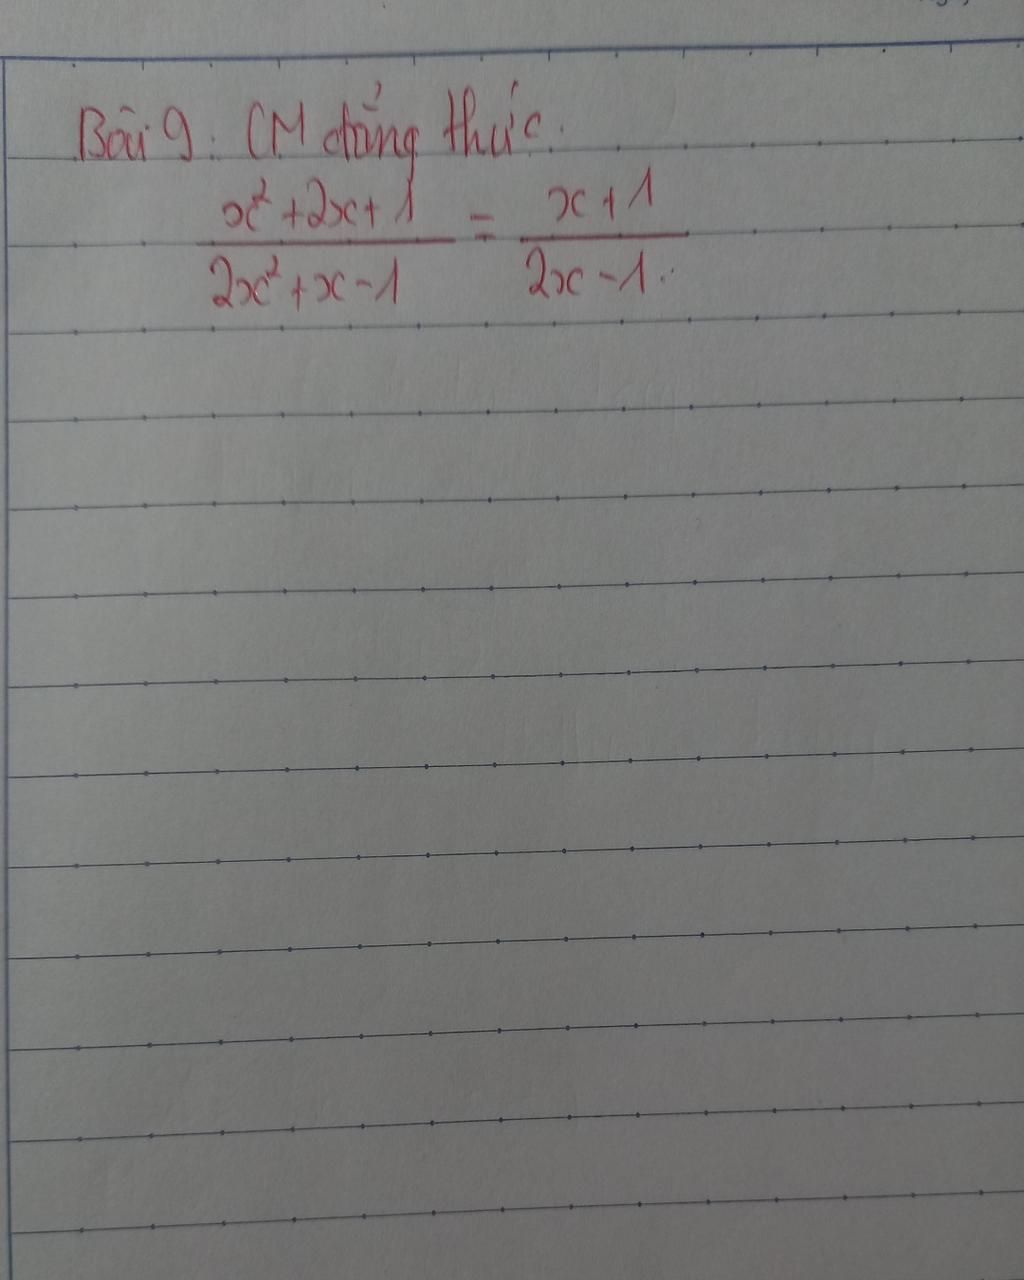 Bài 9: CM đẳng thức.
x²+2x+1 / 2x²+x-1 = x+1 / 2x-1.